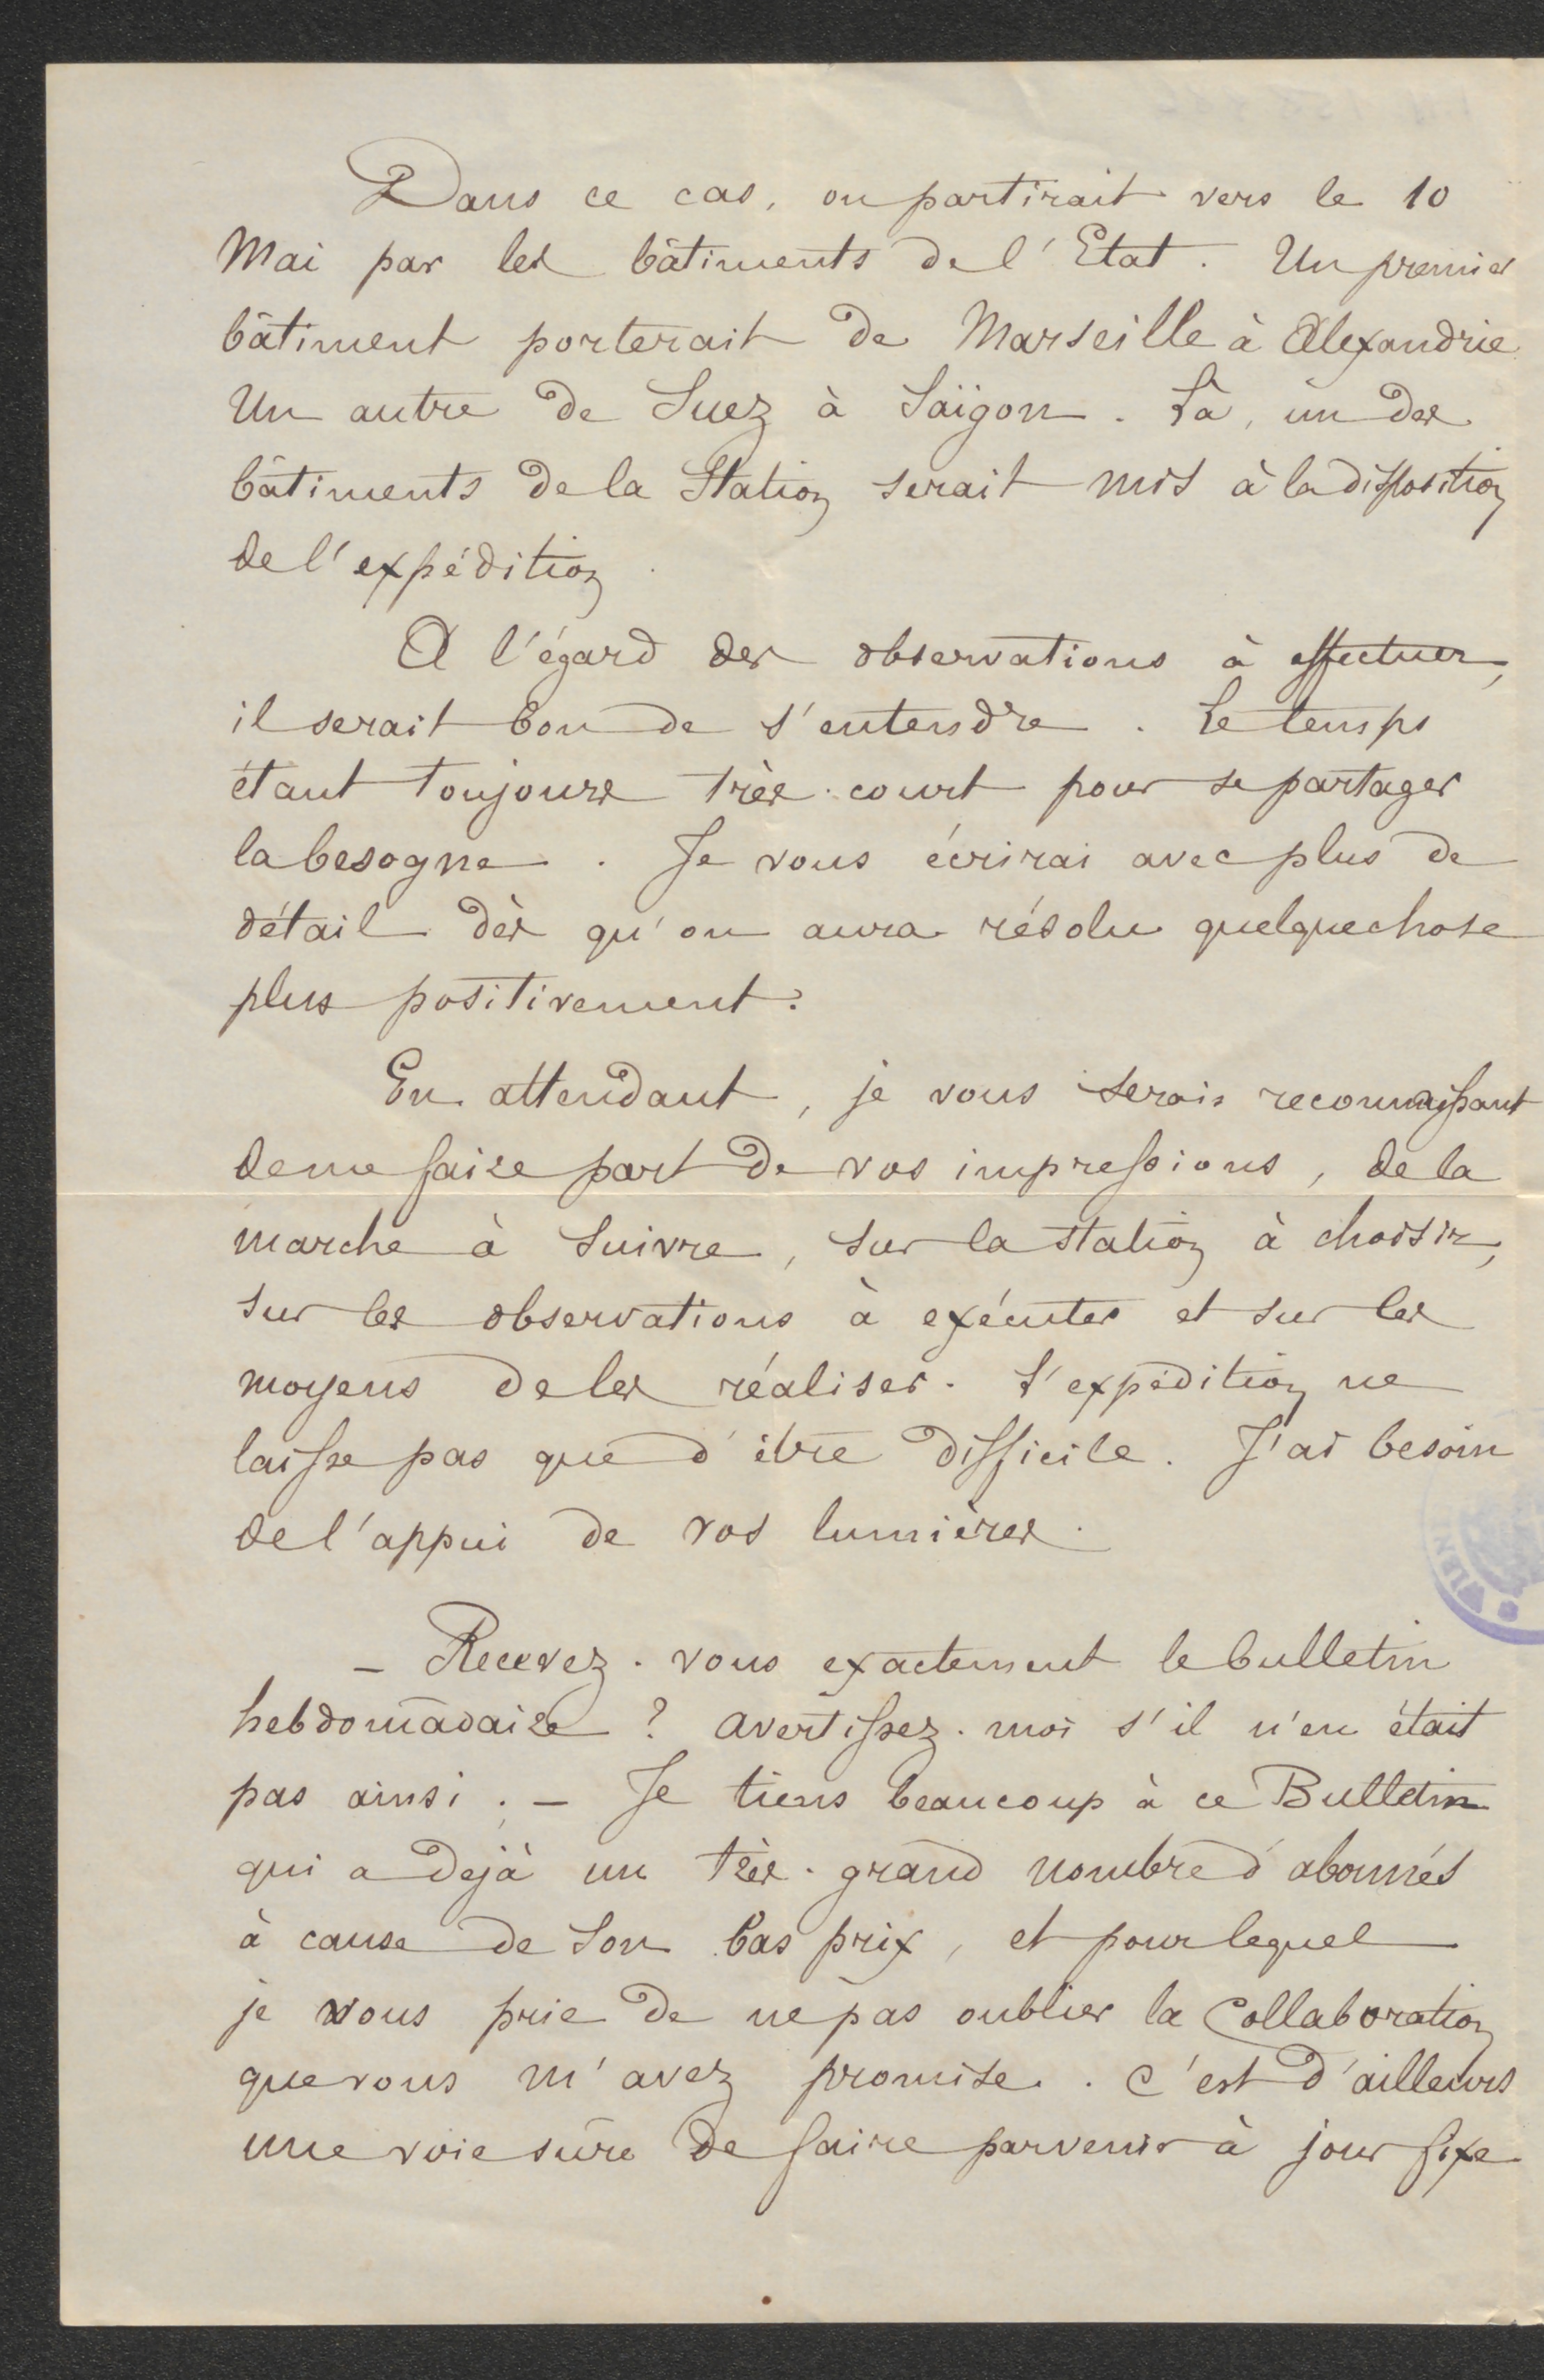 Dans ce cas, on partirait vers le 10
Mai par les bâtiments de l'Etat. Un premier
bâtiment porterait de Marseille à Alexandrie
Un autre de Suez à Saïgon. Là, un des
bâtiments de la Station serait mis à la disposition
de l'expédition.
A l'égard des observations à effectuer,
il serait bon de s'entendre. Le temps
étant toujours très-court pour se partager
la besogne. Je vous écrirai avec plus de
détail dès qu'on aura résolu quelquechose
plus positivement.
En attendant, je vous serais reconnaissant
de me faire part de vos impressions, de la
marche à suivre, sur la station à choisir,
sur les observations à exécuter et sur les
moyens de les réaliser. L'expédition ne
laisse pas que d'être difficile. J'ai besoin
de l'appui de vos lumières.
- Recevez-vous exactement le bulletin
hebdomadaire ? avertissez-moi s'il n'en était
pas ainsi. - Je tiens beaucoup à ce Bulletin
qui a dejà un très-grand nombre d'abonnés
à cause de son bas prix, et pour lequel
je vous prie de ne pas oublier la Collaboration
que vous m'avez promise. C'est d'ailleurs
une voie sûre de faire parvenir à jour fixe